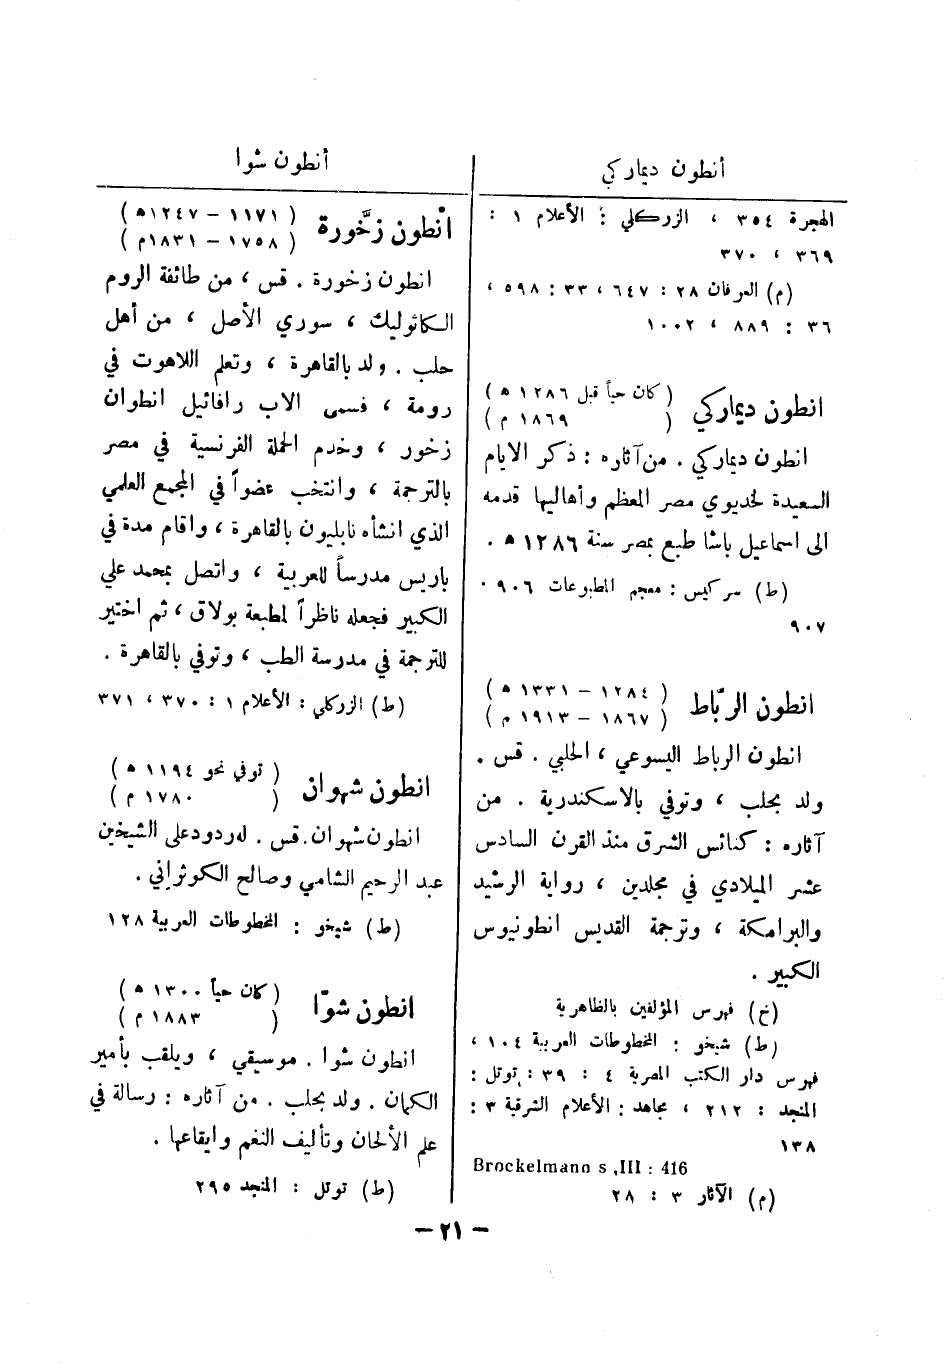 أنطون ديماركي
الهجرة ٣٥٤ ، الزركلي : الأعلام ١ :
٣٦٩ ، ٣٧٠
(م) العرفان ٢٨ : ٦٤٧ ، ٣٣ : ٥٩٨ ،
٣٦ : ٨٨٩ ، ١٠٠٢
انطون ديماركي (كان حياً قبل ١٢٨٦ ه)
( ١٨٦٩ م)
انطون ديماركي . من آثاره : ذكر الايام
السعيدة لخديوي مصر المعظم وأهاليها قدمه
الى اسماعيل باشا طبع بمصر سنة ١٢٨٦ ه .
(ط) سركيس : معجم المطبوعات ٩٠٦ .
٩٠٧
انطون الربّاط (١٢٨٤ – ١٣٣١ ه)
(١٨٦٧ – ١٩١٣ م)
انطون الرباط اليسوعي ، الحلبي . قس .
ولد بحلب ، وتوفي بالاسكندرية . من
آثاره : كنائس الشرق منذ القرن السادس
عشر الميلادي في مجلدين ، رواية الرشيد
والبرامكة ، وترجمة القديس انطونيوس
الكبير .
(خ) فهرس المؤلفين بالظاهرية
(ط) شيخو : المخطوطات العربية ١٠٤ ،
فهرس دار الكتب المصرية ٤ : ٣٩ : توتل :
المنجد : ٢١٢ ، مجاهد : الأعلام الشرقية ٣ :
١٣٨
Brockelmann s ,III : 416
(م) الآثار ٣ : ٢٨
أنطون شوا
انْطون زخَّورة (١١٧١ – ١٢٤٧ه)
(١٧٥٨ – ١٨٣١م)
انطون زخورة . قس ، من طائفة الروم
الكاثوليك ، سوري الأصل ، من أهل
حلب . ولد بالقاهرة ، وتعلم اللاهوت في
رومة ، فسمى الاب رافائيل انطوان
زخور ، وخدم الحملة الفرنسية في مصر
بالترجمة ، وانتخب عضواً في المجمع العلمي
الذي انشأه نابليون بالقاهرة ، واقام مدة في
باريس مدرساً للعربية ، واتصل بمحمد علي
الكبير فجعله ناظراً لمطبعة بولاق ، ثم اختير
للترجمة في مدرسة الطب ، وتوفي بالقاهرة .
(ط) الزركلي : الأعلام ١ : ٣٧٠ ، ٣٧١
انطون شهوان (توفي نحو ١١٩٤ ه)
( ١٧٨٠ م)
انطون شهوان. قس . له ردود على الشيخين
عبد الرحيم الشامي وصالح الكوثراني .
(ط) شيخو : المخطوطات العربية ١٢٨
انطون شوّا (كان حياً ١٣٠٠ ه)
( ١٨٨٣ م)
انطون شوا . موسيقي ، ويلقب بأمير
الكمان . ولد بحلب . من آثاره : رسالة في
علم الألحان وتأليف النغم وايقاعها .
(ط) توتل : المنجد ٢٩٥
– ٢١ –